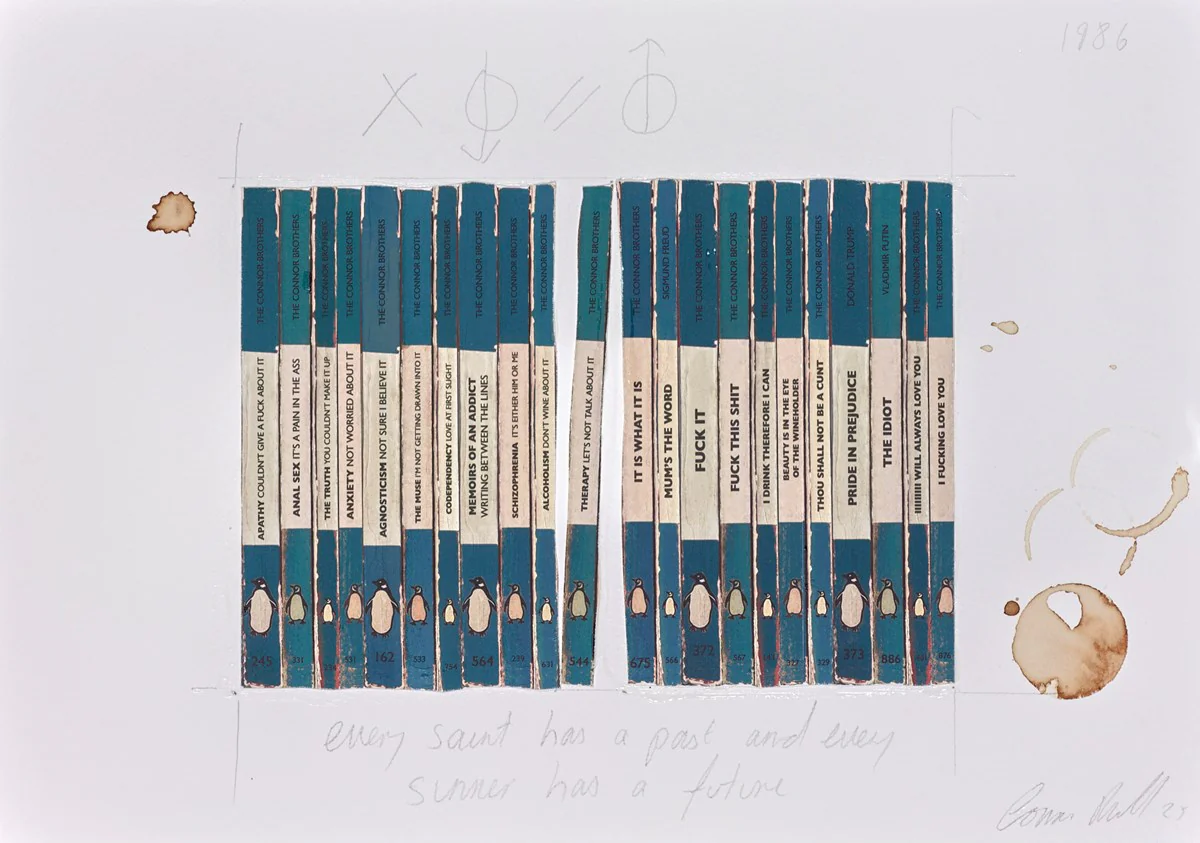 1986
THE CONNOR BROTHERS
APATHY COULDN'T GIVE A FUCK ABOUT IT
245
THE CONNOR BROTHERS
ANAL SEX IT'S A PAIN IN THE ASS
331
THE CONNOR BROTHERS
THE TRUTH YOU COULDN'T MAKE IT UP
THE CONNOR BROTHERS
ANXIETY NOT WORRIED ABOUT IT
THE CONNOR BROTHERS
AGNOSTICISM NOT SURE I BELIEVE IT
162
THE CONNOR BROTHERS
THE MUSE I'M NOT GETTING DRAWN INTO IT
533
THE CONNOR BROTHERS
CODEPENDENCY LOVE AT FIRST SLIGHT
THE CONNOR BROTHERS
MEMOIRS OF AN ADDICT
WRITING BETWEEN THE LINES
564
THE CONNOR BROTHERS
SCHIZOPHRENIA IT'S EITHER HIM OR ME
THE CONNOR BROTHERS
ALCOHOLISM DON'T WINE ABOUT IT
631
THE CONNOR BROTHERS
THERAPY LET'S NOT TALK ABOUT IT
544
THE CONNOR BROTHERS
IT IS WHAT IT IS
675
SIGMUND FREUD
MUM'S THE WORD
566
THE CONNOR BROTHERS
FUCK IT
372
THE CONNOR BROTHERS
FUCK THIS SHIT
567
THE CONNOR BROTHERS
I DRINK THEREFORE I CAN
THE CONNOR BROTHERS
BEAUTY IS IN THE EYE
OF THE WINEHOLDER
327
THE CONNOR BROTHERS
THOU SHALL NOT BE A CUNT
329
DONALD TRUMP
PRIDE IN PREJUDICE
373
VLADIMIR PUTIN
THE IDIOT
886
THE CONNOR BROTHERS
IIIIIIIII WILL ALWAYS LOVE YOU
THE CONNOR BROTHERS
I FUCKING LOVE YOU
every saint has a past and every
sinner has a future